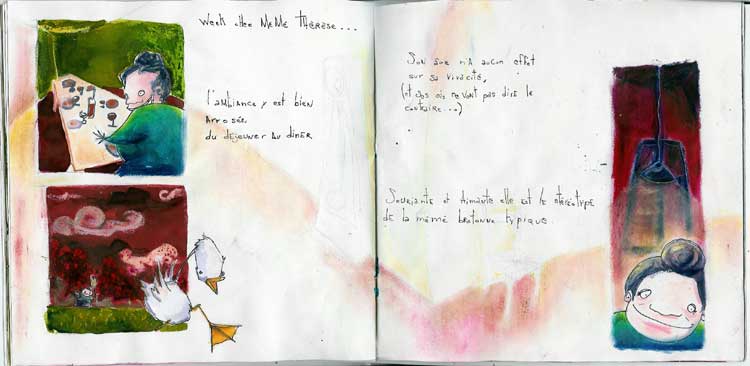 Week chez MéMé Thérèse...
l'ambiance y est bien
arrosée
du déjeuner au dîner
Son age n'a aucun effet
sur sa vivacité,
(et ses ne vont pas dire le
contraire...)
Souriante et aimante elle est le stéréotype
de la mémé bretonne typique.